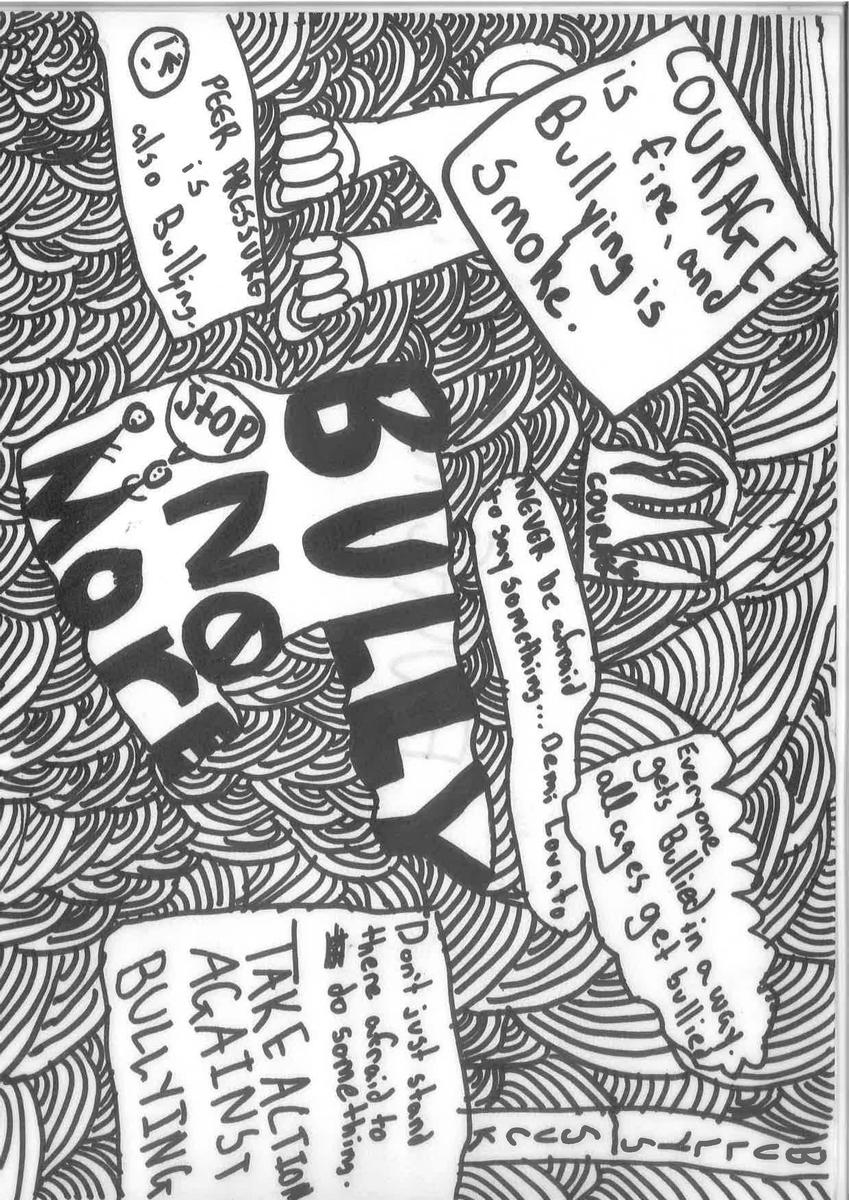 COURAGE
is fire, and
Bullying is
Smoke.
COURAGE
NEVER be afraid
to say something... Demi Lovato
Everyone
gets Bullied in a way.
all ages get bullied
BULLYS
SUCK
PEER PRESSURE
is
also Bullying.
BULLY
STOP
NO
MORE
Don't just stand
there afraid to
do something.
TAKE ACTION
AGAINST
BULLYING